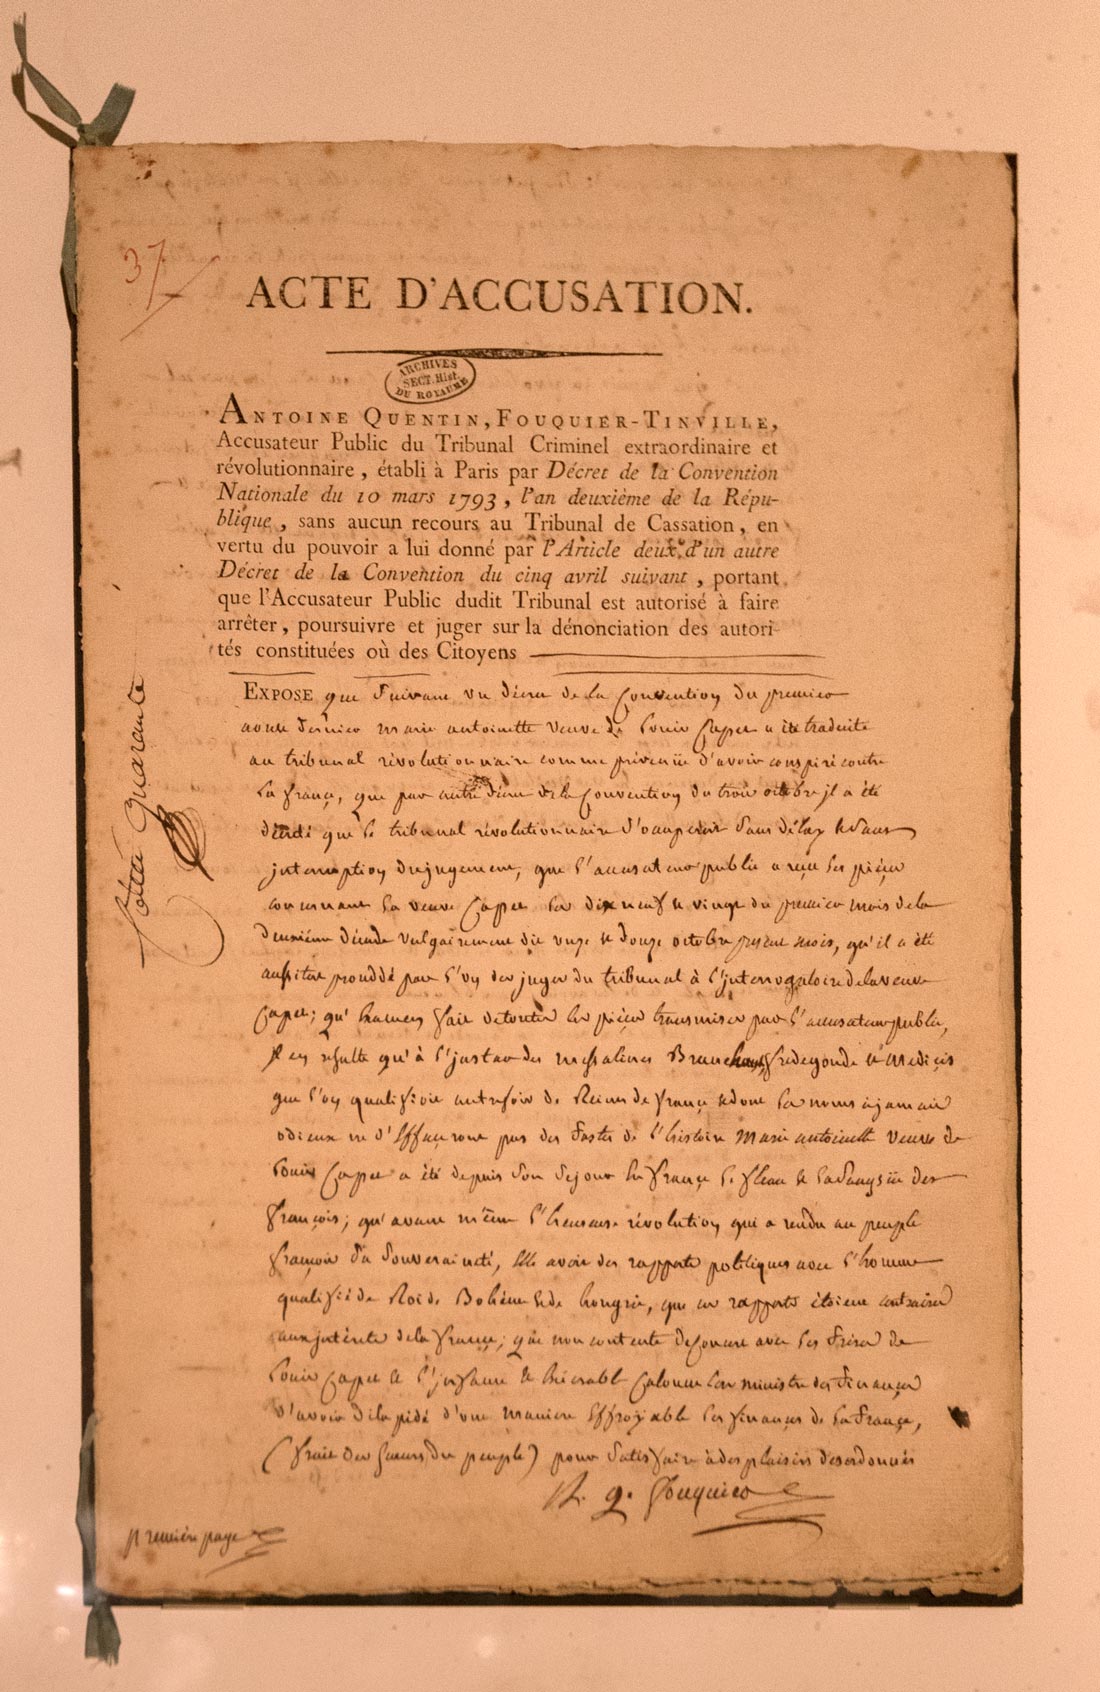 37
ACTE D'ACCUSATION.
ARCHIVES
SECT. Hist.
DU ROYAUME
ANTOINE QUENTIN, FOUQUIER-TINVILLE,
Accusateur Public du Tribunal Criminel extraordinaire et
révolutionnaire, établi à Paris par Décret de la Convention
Nationale du 10 mars 1793, l'an deuxième de la Répu-
blique, sans aucun recours au Tribunal de Cassation, en
vertu du pouvoir a lui donné par l'Article deux d'un autre
Décret de la Convention du cinq avril suivant, portant
que l'Accusateur Public dudit Tribunal est autorisé à faire
arrêter, poursuivre et juger sur la dénonciation des autori-
tés constituées où des Citoyens
EXPOSE que Suivant un décret de la Convention du premier
aoust dernier marie antoinette veuve de Louis Capet a été traduite
au tribunal révolutionnaire comme prévenüe d'avoir conspiré contre
la france, que par autre décret de la Convention du trois octobre il a été
décrété que le tribunal révolutionnaire s'occuperoit sans délay et sans
interruption du jugement, que l'accusateur public a reçu les pièces
concernant la veuve Capet les dixneuf et vingt du premier mois de la
deuxième décade vulgairement dit onze et douze octobre présent mois, qu'il a été
aussitôt procédé par l'un des juges du tribunal à l'interrogatoire de la veuve
Capet; qu'examen fait de toutes les pièces transmises par l'accusateur public,
il en résulte qu'à l'instar des messalines Brunehaut, fredegonde et Medicis
que l'on qualifioit autrefois de Reines de france et dont les noms à jamais
odieux ne s'effaceront pas des fastes de l'histoire Marie antoinette veuve de
Louis Capet a été depuis son séjour en france le fleau et la sangsüe des
françois; qu'avant même l'heureuse révolution qui a rendu au peuple
françois sa souveraineté, elle avoit des rapports politiques avec l'homme
qualifié de Roi de Bohême et de hongrie, que ces rapports étoient contraires
aux intérêts de la france; que non contente de concert avec les frères de
Louis Capet et l'infame et exécrable Calonne lors ministre des finances
d'avoir dilapidé d'une maniere effroyable les finances de la france,
(fruit des sueurs du peuple) pour satisfaire à des plaisirs desordonnés
A. q. Fouquier
première page
Cottée quarante